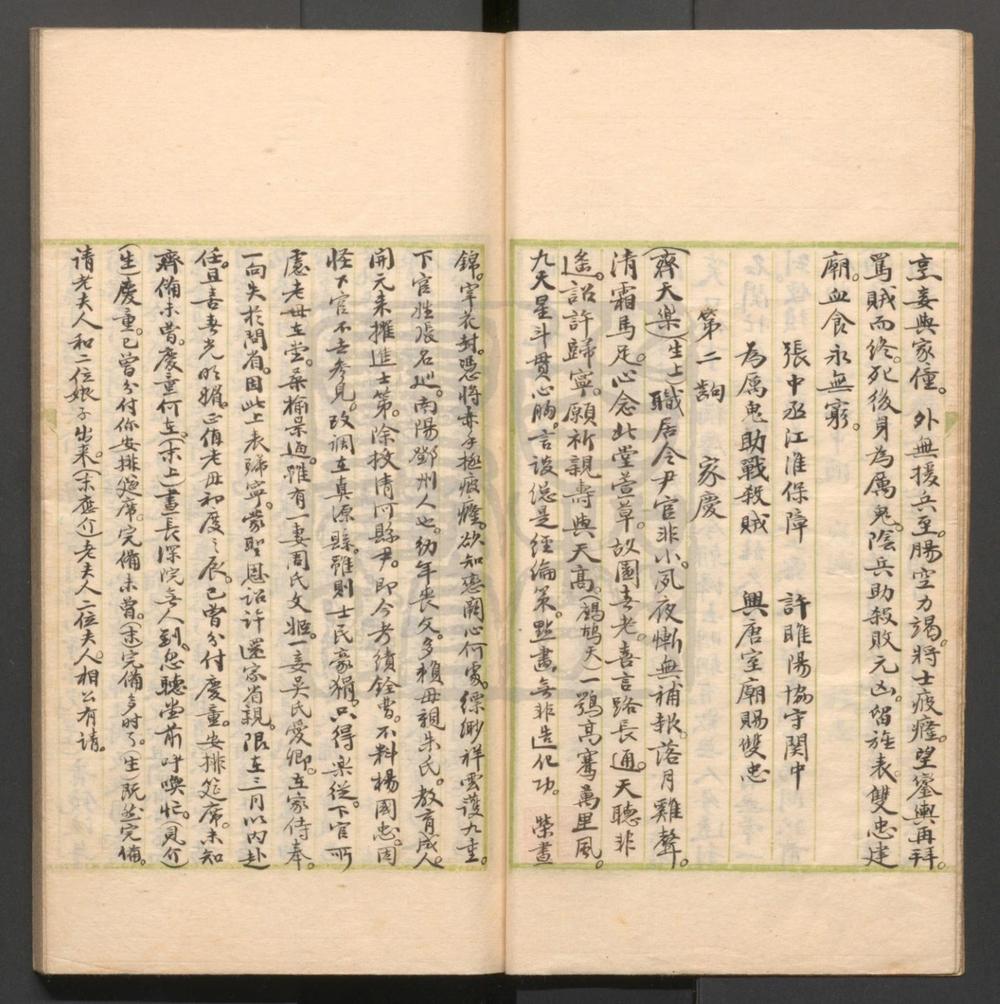 烹妾與家僮。外無援兵至。腸空力竭。將士疲癃。望鑾輿再拜。
罵賊而終。死後身為厲鬼。陰兵助殺敗元凶。留旌表雙忠建
廟。血食永無窮。
張中丞江淮保障　許睢陽協守關中
為厲鬼助戰殺賊　興唐室廟賜雙忠
第二齣　家慶
(齊天樂)(生上)職居令尹官非小。夙夜慚無補報。落月雞聲。
清霜馬足。心念此堂萱草。故園喜老。喜言路長通。天聽非
遙。詔許歸寧。願祈親壽與天高。(鷓鴣天)一鶚高騫萬里風。
九天星斗貫心胸。言詞總是經綸策。點畫無非造化功。　榮晝
錦。宰花封。憑將赤手拯疲癃。欲知戀闕心何處。縹緲祥雲護九重。
下官姓張名巡。南陽鄧州人也。幼年喪父。多賴母親朱氏。教育成人。
開元末擢進士第。除授清河縣尹。即今考績銓曹。不料楊國忠。因
怪下官不去參見。改調在真源縣。雖則士民豪猾。只得樂從。下官所
慮老母在堂。桑榆景迫。雖有一妻周氏文姬。一妾吳氏愛卿。在家侍奉。
一向失於問省。因此上表歸寧。蒙聖恩詔許還家省親。限在三月以內赴
任。且喜春光明媚。正值老母初度之辰。已曾分付慶童。安排筵席。未知
齊備未曾。慶童何在。(末上)晝長深院無人到。忽聽堂前叫喚忙。(見介)
(生)慶童。已曾分付你安排筵席。完備未曾。(末)完備多時了。(生)既然完備。
請老夫人和二位娘子出來。(末應介)老夫人二位夫人。相公有請。